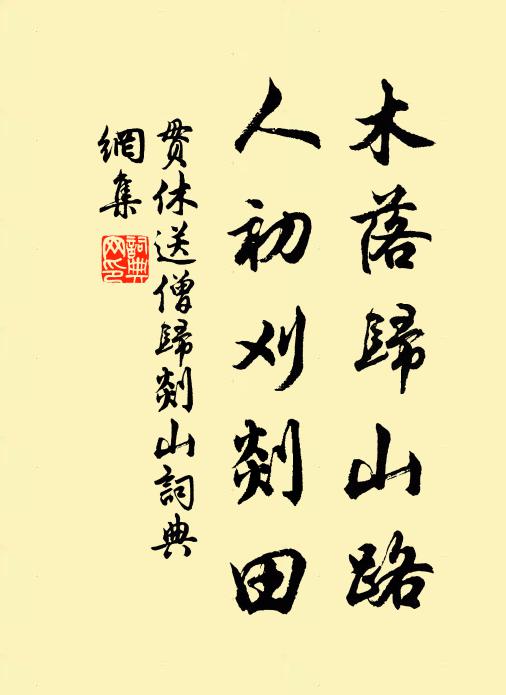 木落歸山路
人初刈剡田
貫休送僧歸剡山詞典
網集
詞典
网印